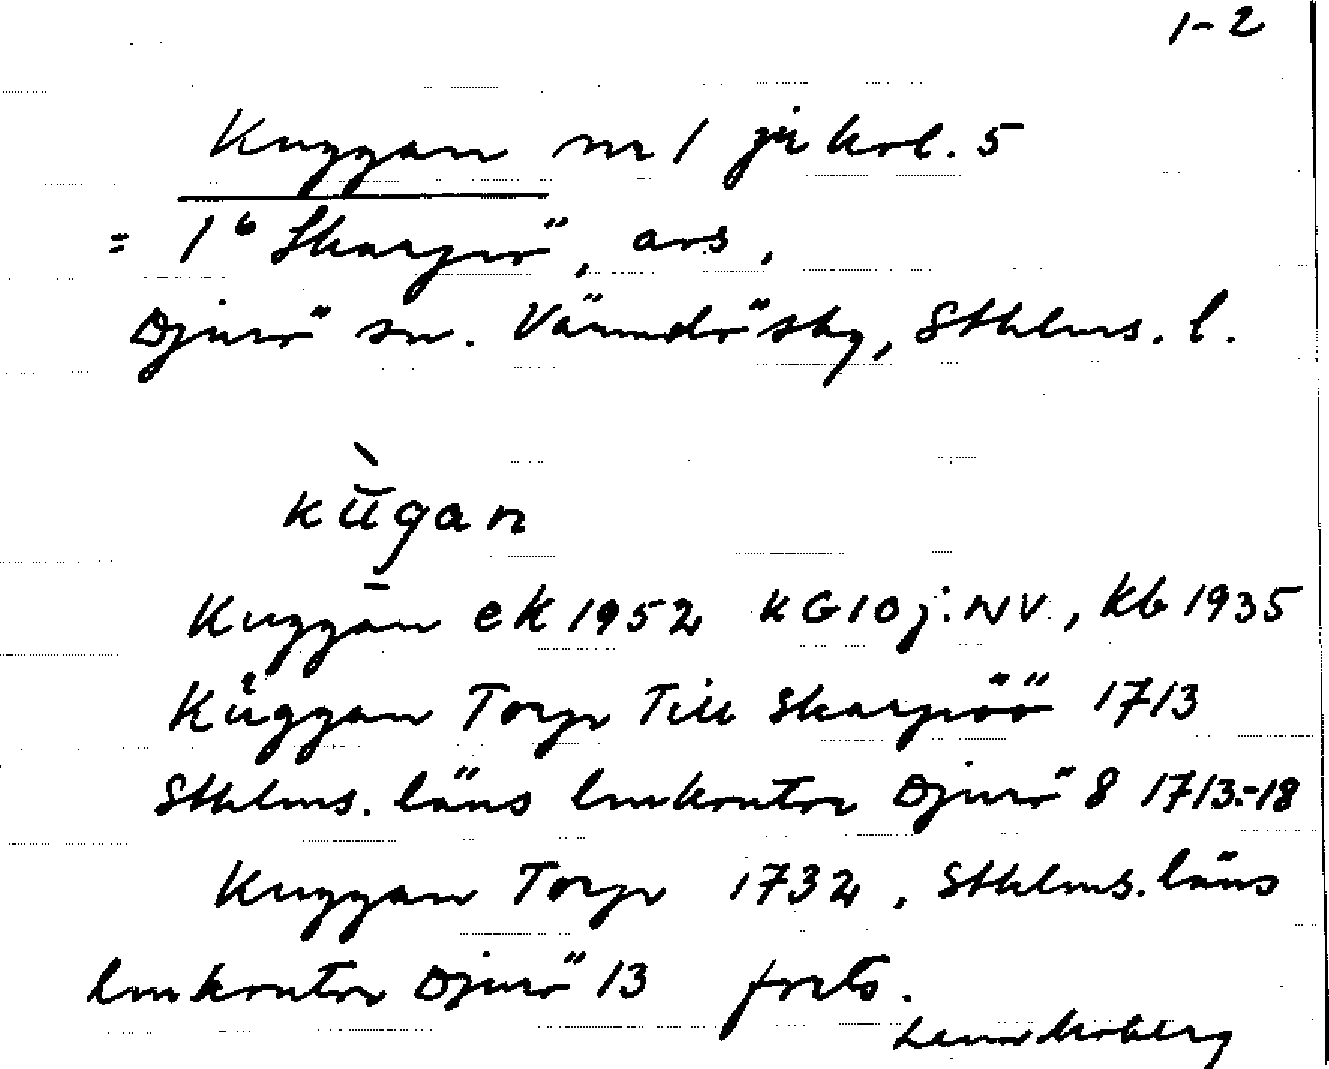 1-2
Kuggan nr 1 jr kol. 5
= 1⁶ Skarpö, avs,
Djurö sn. Värmdö skg, Sthlms. l.
kŭ̀gan
Kuggan ek 1952 KG 10 j. NV., kb 1935
Kůggan Torp Till Skarpöö 1713
Sthlms. läns lmkontor Djurö 8 1713-18
Kuggan Torp 1732, Sthlms. läns
lmkontor Djurö 13 forts.
Lena Moberg